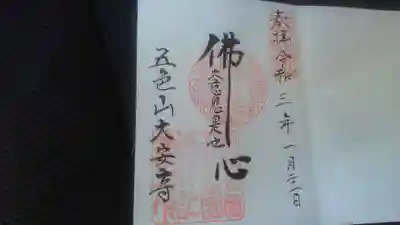 奉拝 令和三年一月二一日
佛心
大慈悲是也
五色山大安寺